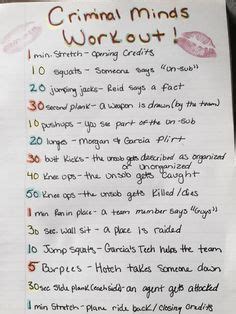 Criminal Minds
Workout!
1 min. Stretch - opening credits
10 squats - Someone says "un-sub"
20 jumping jacks - Reid says a fact
30 second plank - a weapon is drawn (by the team)
10 pushups - you see part of the un-sub
20 lunges - Morgan & Garcia flirt
30 butt kicks - the unsub gets described as organized
or unorganized
40 knee ups - the unsub gets caught
50 knee ups - the unsub gets killed/dies
1 min run in place - a team member says "Guys"
30 sec. wall sit - a place is raided
10 Jump squats - Garcia's Tech helps the team
5 Burpees - Hotch takes someone down
30 sec side plank (each side) - an agent gets attacked
1 min Stretch - plane ride back / closing credits